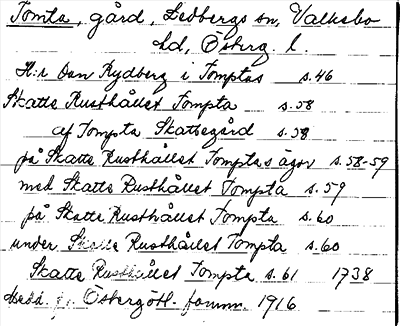 Tomta, gård, Ledbergs sn, Valkebo
hd, Österg. l.
H:r Dan Rydberg i Tomptas s. 46
Skatte Rusthållet Tompta s. 58
af Tompta Skattegård s. 58
på Skatte Rusthållet Tomptas ägor s. 58-59
med Skatte Rusthållet Tompta s. 59
på Skatte Rusthållet Tompta s. 60
under Skatte Rusthållet Tompta s. 60
Skatte Rusthållet Tompta s. 61 1738
Medd. fr. Östergötl. fornm. 1916